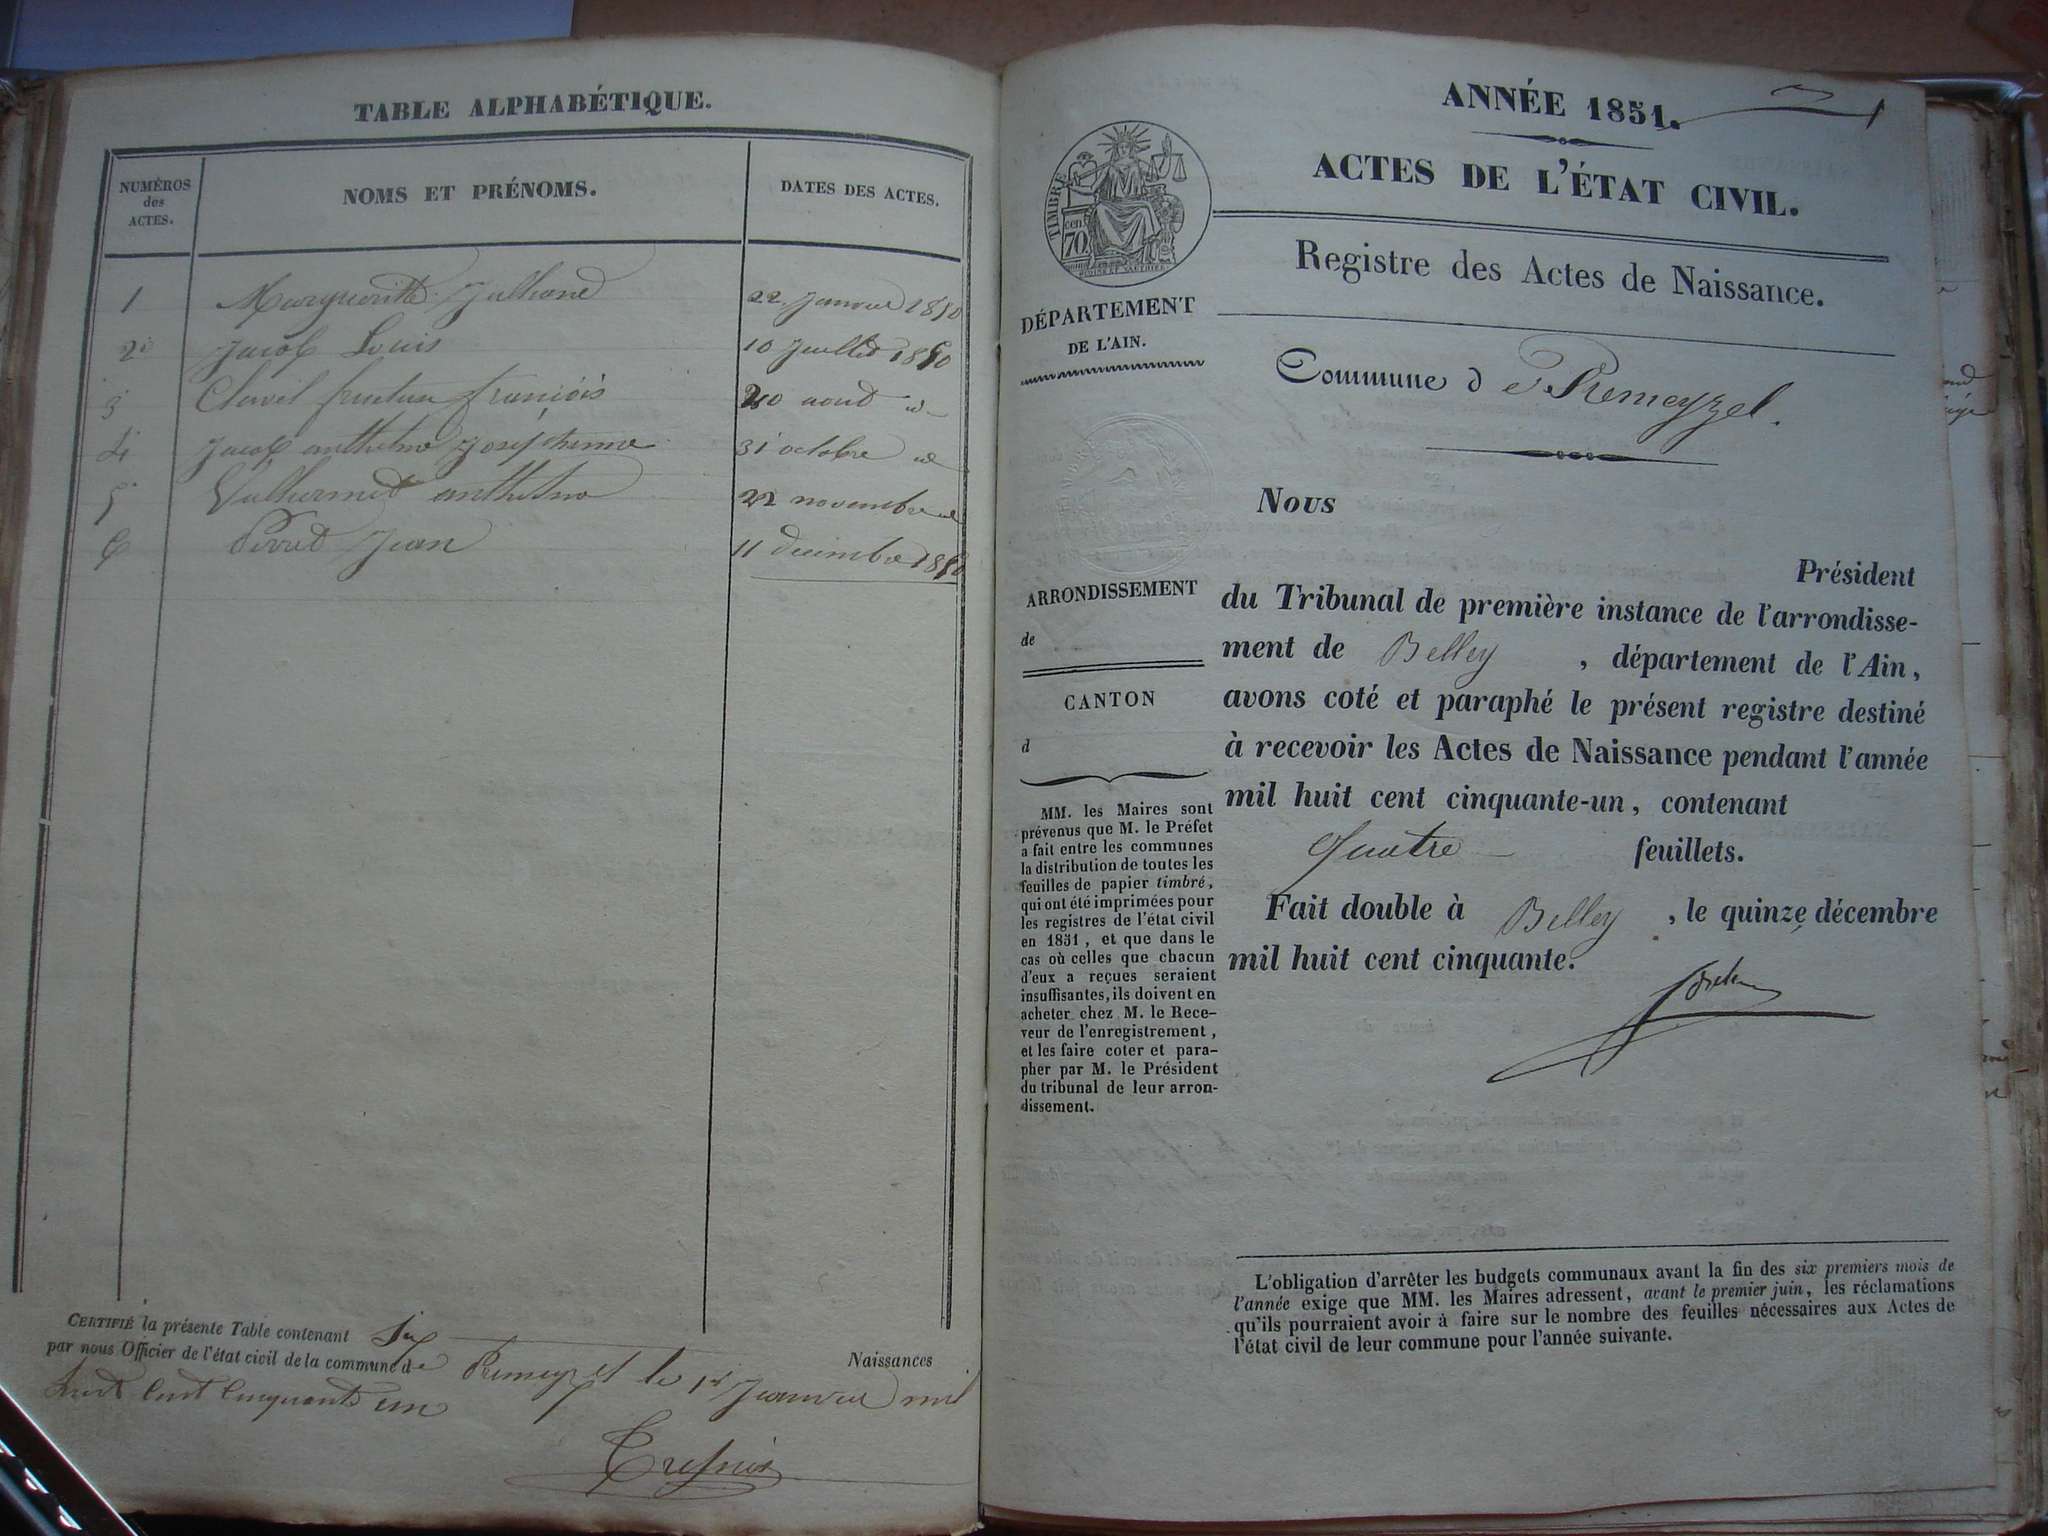 TABLE ALPHABÉTIQUE.
NUMÉROS des ACTES.
NOMS ET PRÉNOMS.
DATES DES ACTES.
1 Marguerite 22 Janvier 1850
2 Jacob Louis 10 Juillet 1850
3 Clavel françois 20 aout id
4 Jacob anthelme Joséphine 31 octobre id
5 Vuillermet anthelme 22 novembre id
6 Perret Jean 11 decembre 1850
CERTIFIÉ la présente Table contenant Six Naissances
par nous Officier de l'état civil de la commune de Premeyzel le 1er Janvier mil
huit cent cinquante un
ANNÉE 1851.
1
ACTES DE L'ÉTAT CIVIL.
TIMBRE
70 cen
Registre des Actes de Naissance.
DÉPARTEMENT
DE L'AIN.
Commune de Premeyzel.
Nous
Président
du Tribunal de première instance de l'arrondisse-
ment de Belley, département de l'Ain,
avons coté et paraphé le présent registre destiné
à recevoir les Actes de Naissance pendant l'année
mil huit cent cinquante-un, contenant
Quatre feuillets.
Fait double à Belley, le quinze décembre
mil huit cent cinquante.
ARRONDISSEMENT
de
CANTON
d
MM. les Maires sont
prévenus que M. le Préfet
a fait entre les communes
la distribution de toutes les
feuilles de papier timbré,
qui ont été imprimées pour
les registres de l'état civil
en 1851, et que dans le
cas où celles que chacun
d'eux a reçues seraient
insuffisantes, ils doivent en
acheter chez M. le Rece-
veur de l'enregistrement,
et les faire coter et para-
pher par M. le Président
du tribunal de leur arron-
dissement.
L'obligation d'arrêter les budgets communaux avant la fin des six premiers mois de
l'année exige que MM. les Maires adressent, avant le premier juin, les réclamations
qu'ils pourraient avoir à faire sur le nombre des feuilles nécessaires aux Actes de
l'état civil de leur commune pour l'année suivante.